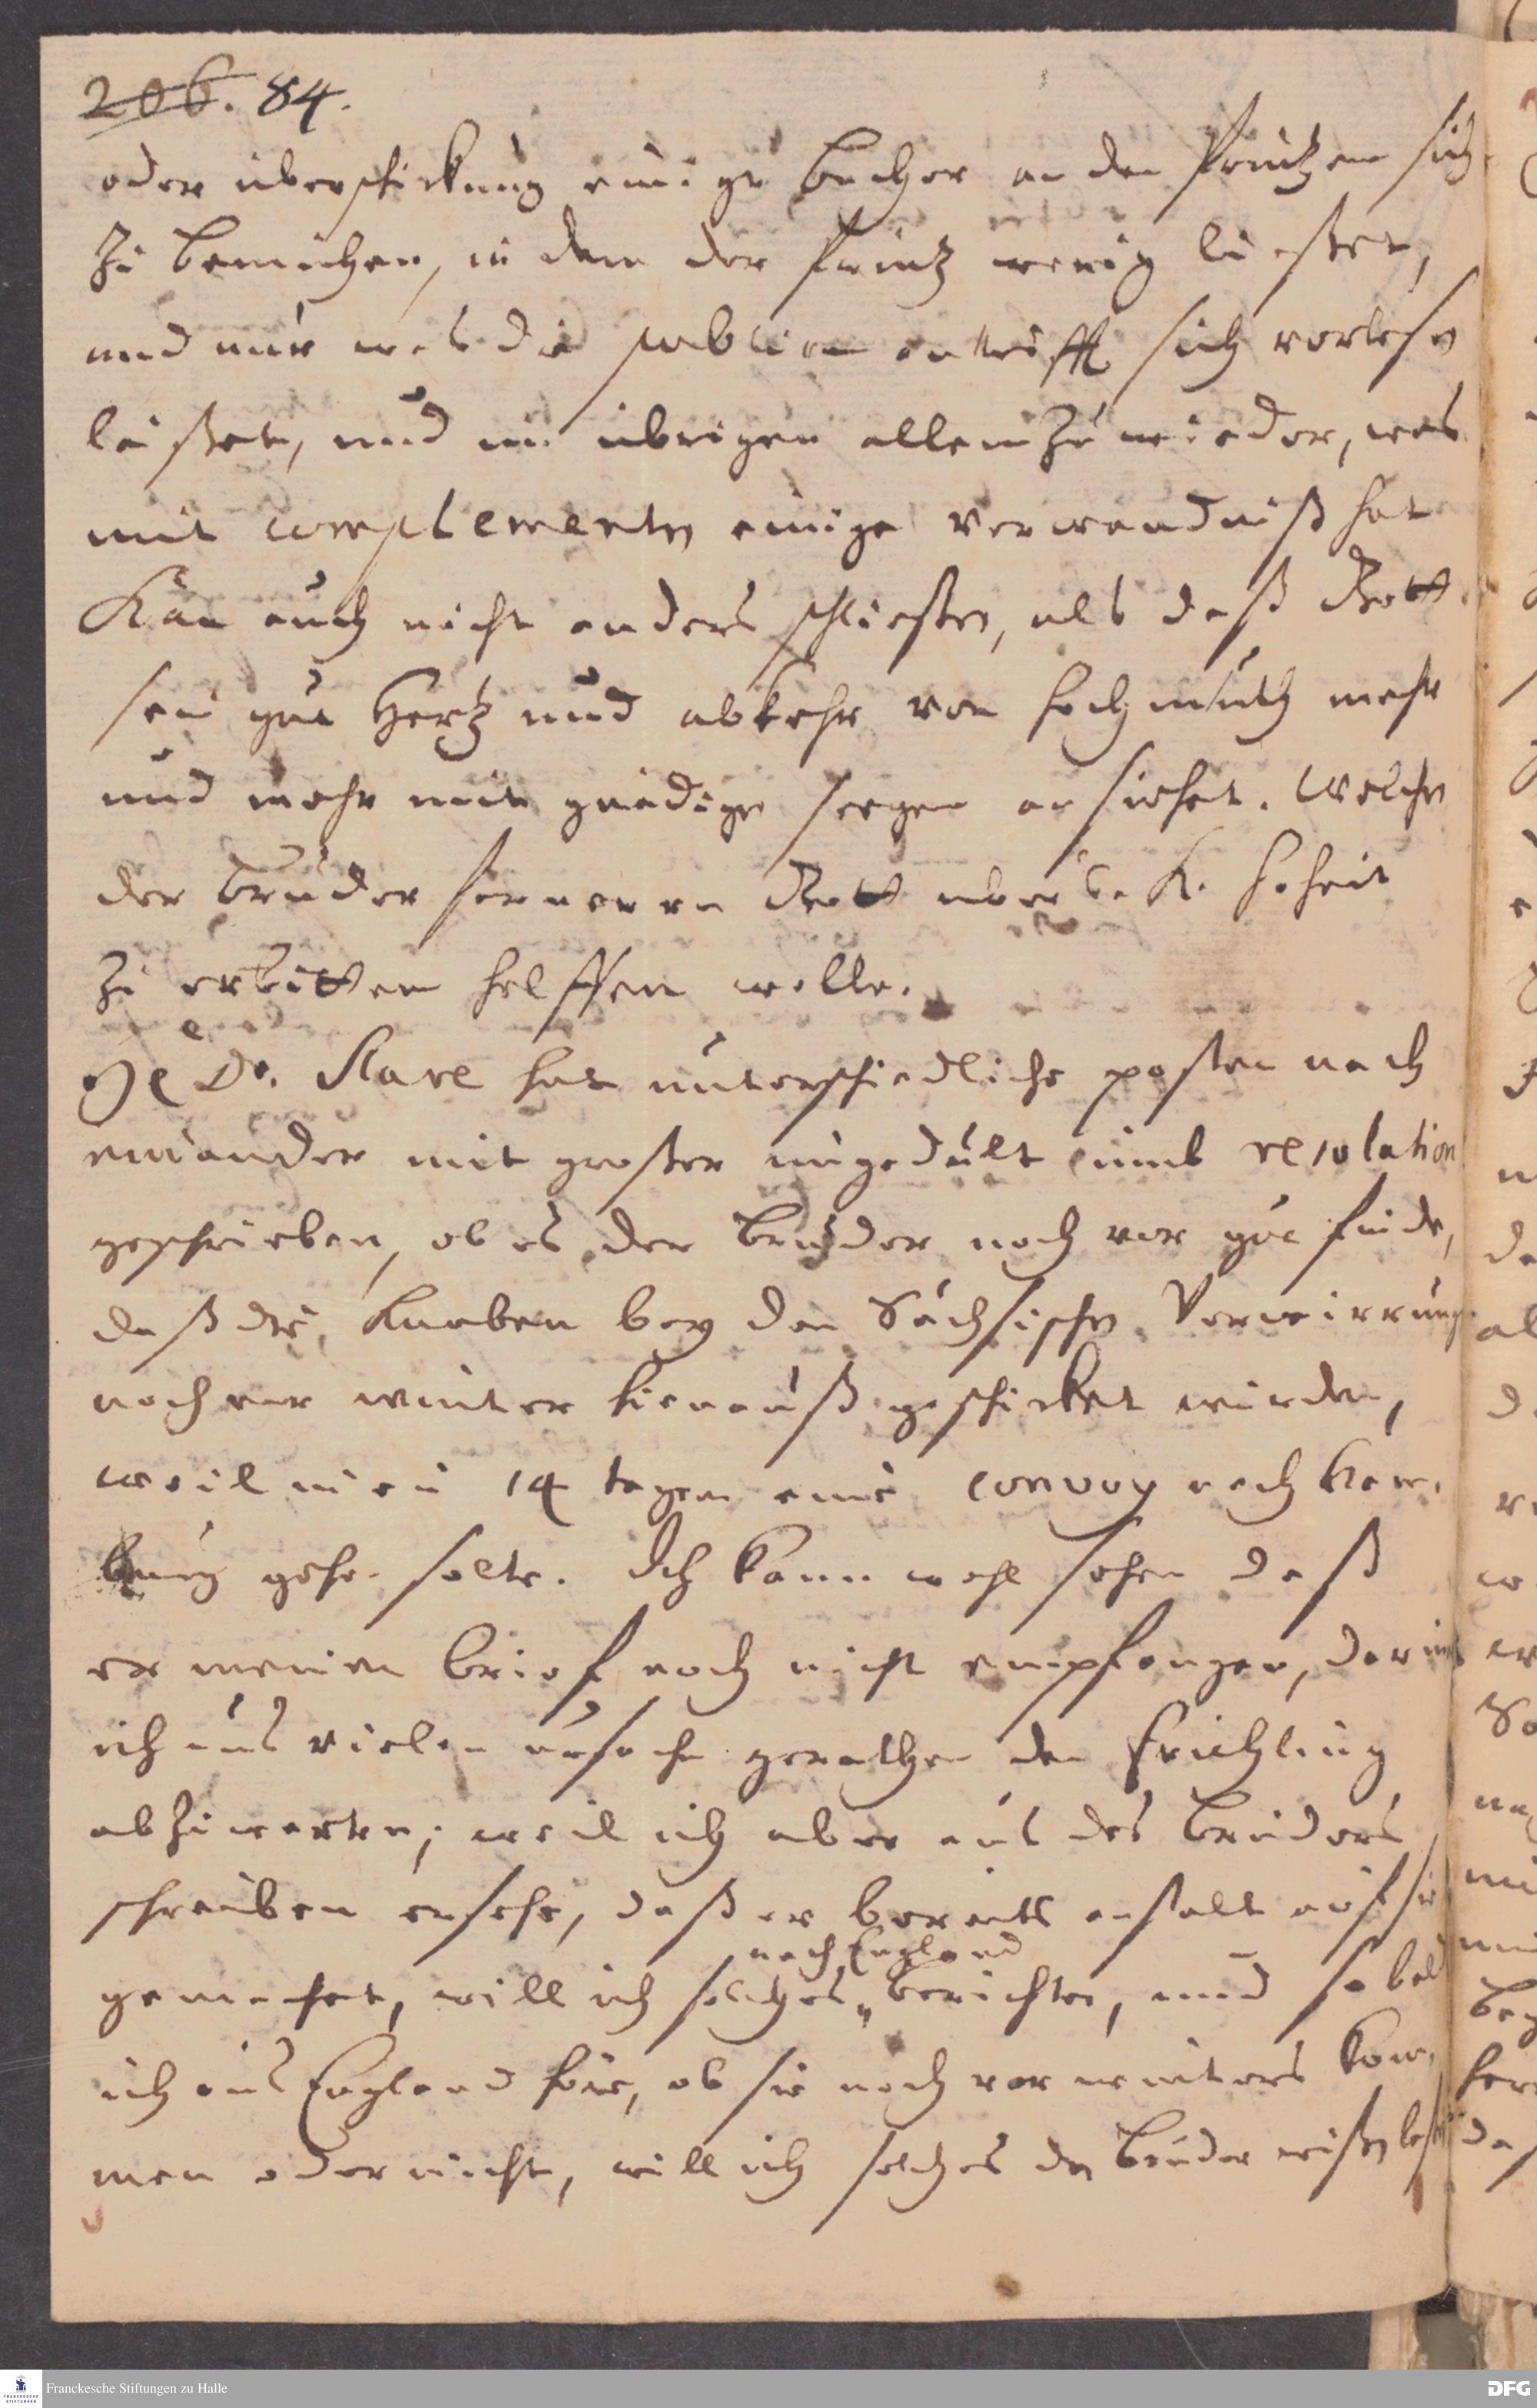 206. 84.
oder überschickung einiger bucher an den Printzen sich
zu bemühen, in dem der Printz wenig lieset,
und nur was die publica antrifft sich vorlesen
läßet, und im übrigen allem zu wieder, was
mit complementen einige verwandniß hat
Kan auch nicht anders schließen, als daß Gott
sein gut Hertz und abkehr von hochmuth mehr
und mehr mit gnädigen seegen ansiehet. Welchen
der bruder fernern von Gott über S. K. Hoheit
zu erbitten helffen wolle.
H D. Slare hat unterschiedliche posten nach
einander mit großer ungedult umb resolution
geschrieben, ob es der bruder noch vor gut finde,
daß die Knaben bey den Sächsischen Verwirrung
noch vor winter hierauß geschicket würden,
weil in ein 14 tagen eine convoy nach Ham
burg gehen solte. Ich kann wohl sehen daß
er meinen brief noch nicht empfangen, darin
ich aus vielen ursachen gerathen den frühling
abzuwarten; weil ich aber aus des bruders
schreiben ersehe, daß er bereits anstalt auf sie
nach England
gemachet, will ich solches berichten, und so bald
ich aus England höre, ob sie noch vor winters kom
men oder nicht, will ich solches den bruder wißen laßen
Franckesche Stiftungen zu Halle
DFG